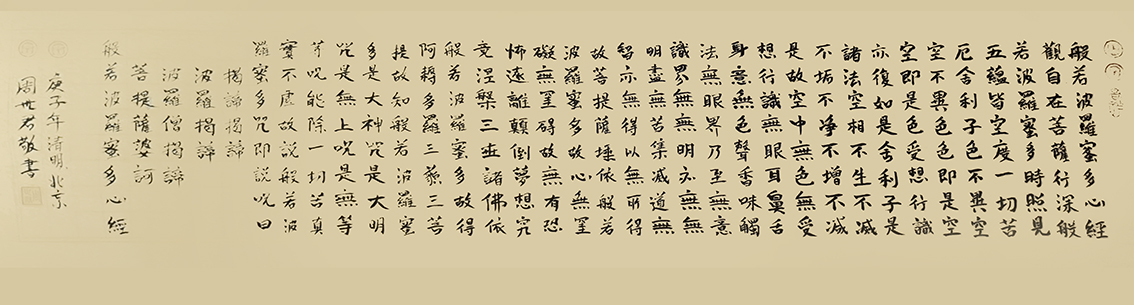 般若波羅蜜多心經
觀自在菩薩行深般
若波羅蜜多時照見
五蘊皆空度一切苦
厄舍利子色不異空
空不異色色即是空
空即是色受想行識
亦復如是舍利子是
諸法空相不生不滅
不垢不淨不增不減
是故空中無色無受
想行識無眼耳鼻舌
身意無色聲香味觸
法無眼界乃至無意
識界無無明亦無無
明盡無苦集滅道無
智亦無得以無所得
故菩提薩埵依般若
波羅蜜多故心無罣
礙無罣碍故無有恐
怖遠離顛倒夢想究
竟涅槃三世諸佛依
般若波羅蜜多故得
阿耨多羅三藐三菩
提故知般若波羅蜜
多是大神咒是大明
咒是無上咒是無等
等咒能除一切苦真
實不虛故說般若波
羅蜜多咒即說咒曰
揭諦揭諦
波羅揭諦
波羅僧揭諦
菩提薩婆訶
般若波羅蜜多心經
庚子年清明北京
周世君敬書